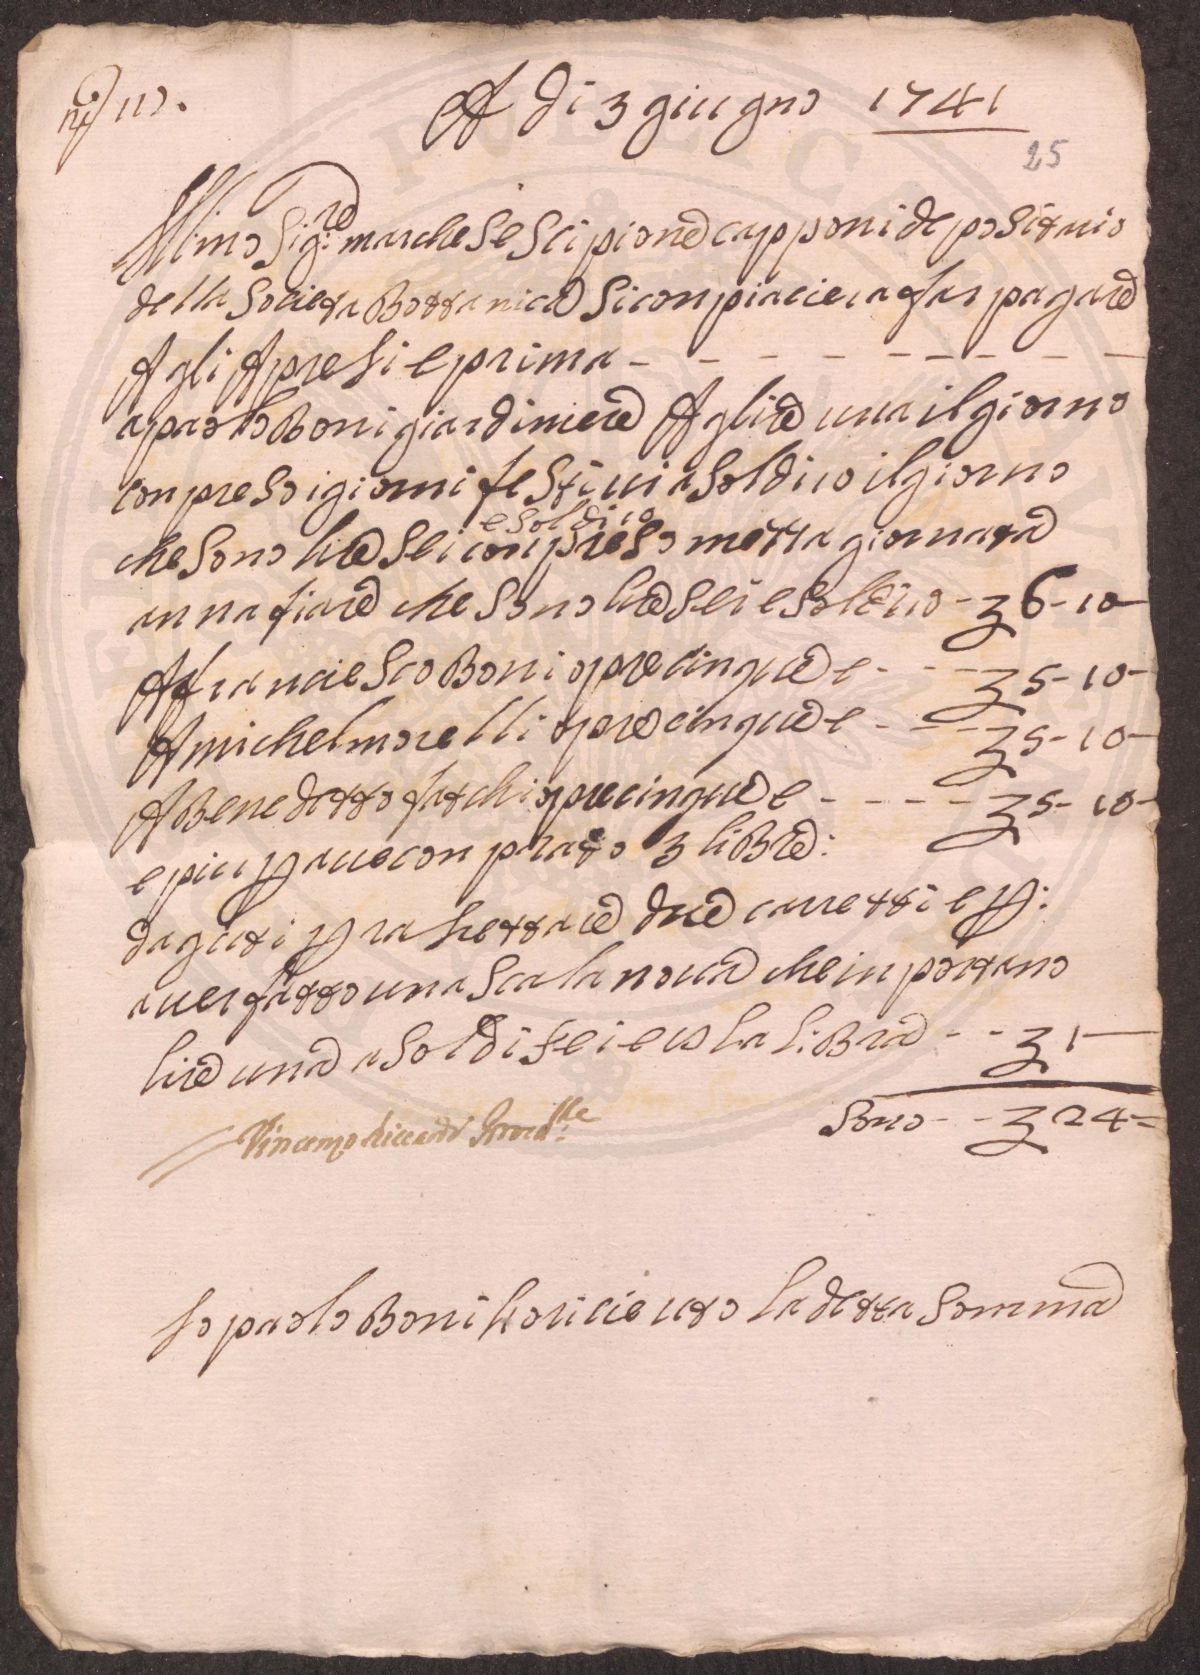 A di 3 giugno 1741
25
Ill:mo Sig:re marchese Scipione capponi depositario
della Societa Bottanica si conpiaciera far pagare
A gli Apresi e prima - - - - - - - - -
a paolo Boni giardiniere A lire una il giorno
conpreso i giorni festiui a soldi 10 il giorno
e soldi 10
che sono lire sei conpreso metta giornata
annafiare che sono lire sei e soldi 10 - 6 - 10 -
A franciesco Boni opre cinque e - - - 5 - 10 -
A michel morelli opre cinque e - - - 5 - 10 -
A Benedetto fachi opre cinque e - - - - - 5 - 10 -
e piu p auer conprato 3 libre:
d aguti p rasettare due carretti e p:
auer fatto una scala noua che inportano
lire una a soldi sei e 8 la libra - - - 1 -
Sono - - 24 =
Vincenzo Riccardi Proved:re
Io paolo Boni ho riceuto la detta somma